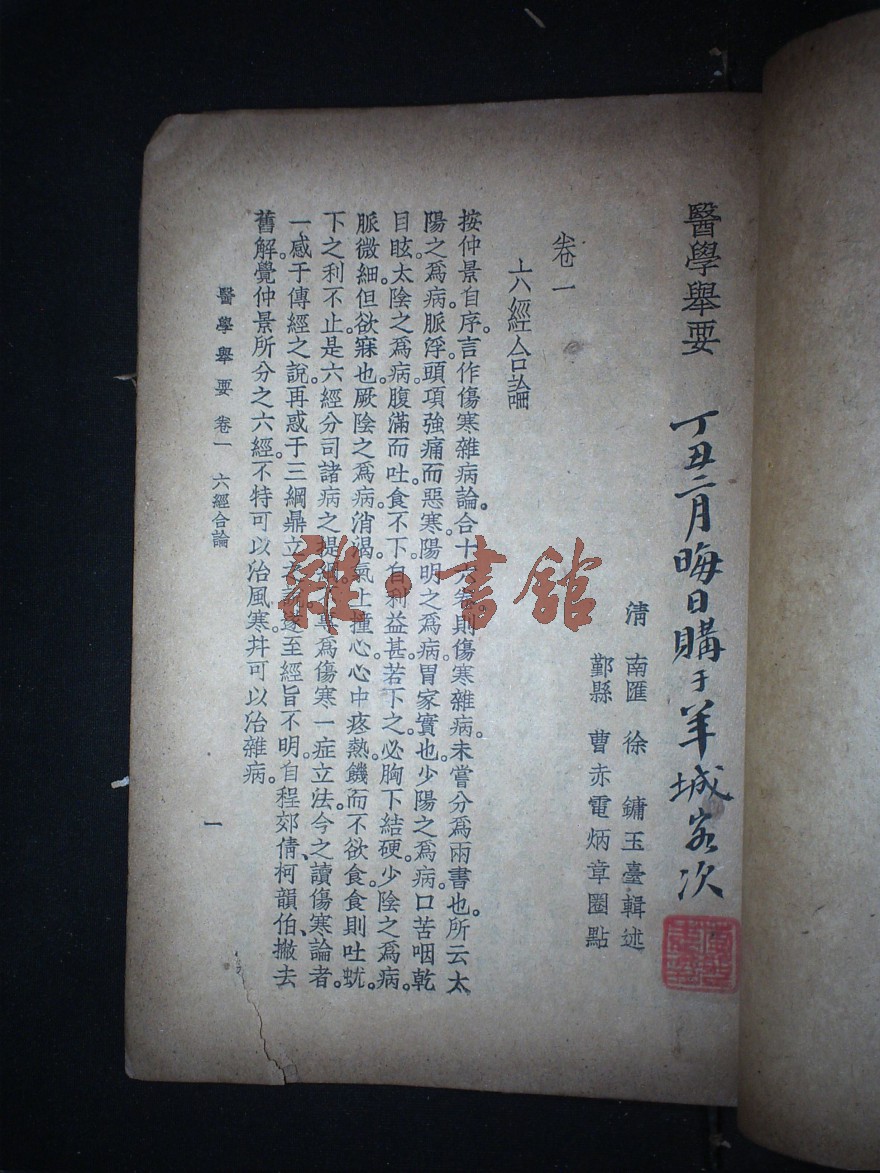 醫學舉要
丁丑二月晦日購于羊城客次
清 南匯 徐 鏞玉臺輯述
鄞縣 曹赤電炳章圈點
卷一
六經合論
按仲景自序。吉作傷寒雜病論。合十六卷。則傷寒雜病。未嘗分爲兩書也。所云太
陽之爲病。脈浮。頭項強痛而惡寒。陽明之爲病。胃家實也。少陽之爲病。口苦咽乾
目眩。太陰之爲病。腹滿而吐。食不下。自利益甚。若下之。必胸下結硬。少陰之爲病。
脈微細。但欲寐也。厥陰之爲病。消渴。氣上撞心。心中疼熱。饑而不欲食。食則吐蚘。
下之利不止。是六經分司諸病之提綱。爲傷寒一症立法。今之讀傷寒論者。
一惑于傳經之說。再惑于三綱鼎立之說。遂至經旨不明。自程郊倩、柯韻伯、撇去
舊解。覺仲景所分之六經。不特可以治風寒。幷可以治雜病。
醫學舉要 卷一 六經合論
一
雜·書館